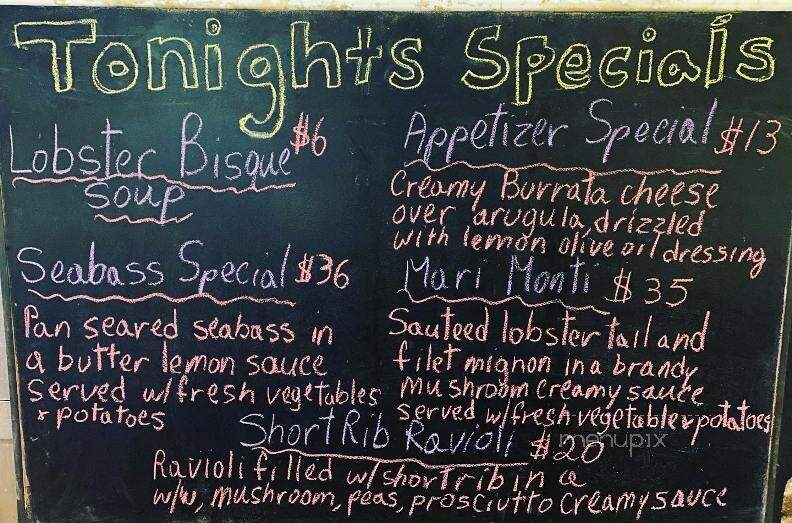 Tonights Specials
Lobster Bisque $6
soup
Appetizer Special $13
Creamy Burrata cheese
over arugula, drizzled
with lemon olive oil dressing
Seabass Special $36
Pan seared seabass in
a butter lemon sauce
served w/fresh vegetables
& potatoes
Mari Monti $35
Sauteed lobster tail and
filet mignon in a brandy
mushroom creamy sauce
served w/fresh vegetable & potatoes
Short Rib Ravioli $20
Ravioli filled w/short rib in a
w/w, mushroom, peas, prosciutto creamy sauce
menupix